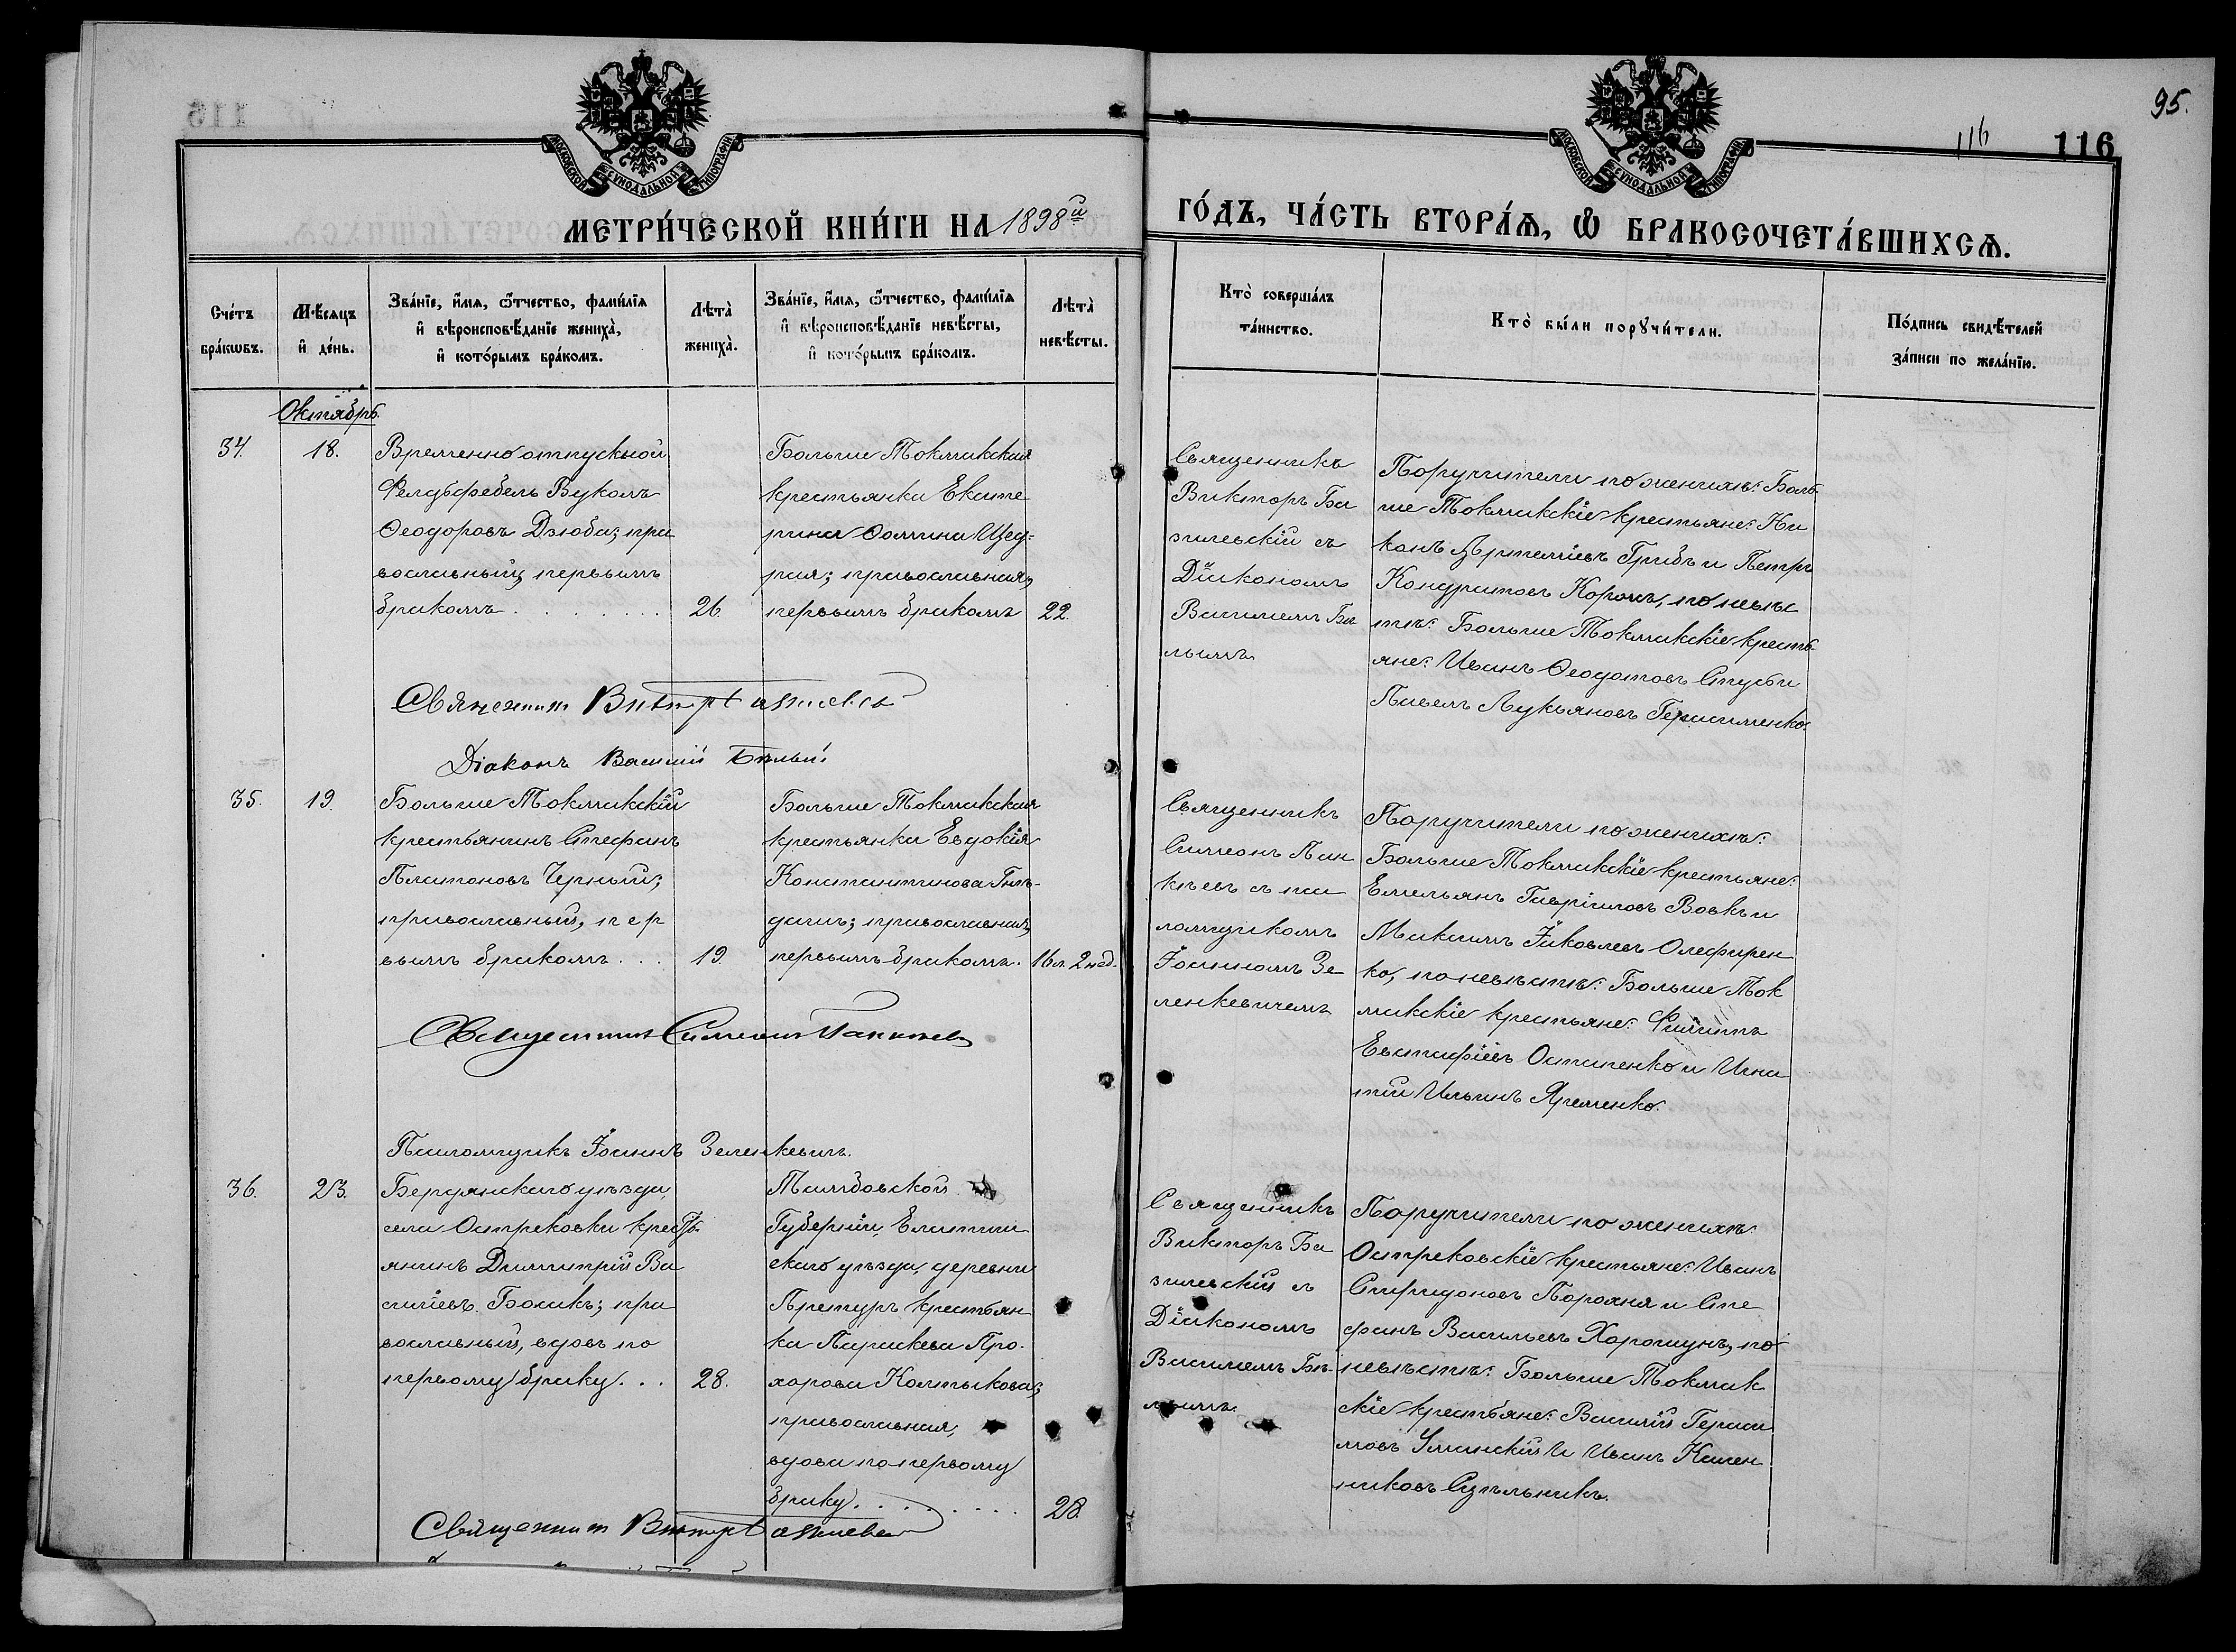 95.
116
116
МОСКОВСКОЙ СѴНОДАЛЬНОЙ ТИПОГРАФІИ
МОСКОВСКОЙ СѴНОДАЛЬНОЙ ТИПОГРАФІИ
МЕТРИ́ЧЕСКОЙ КНИ́ГИ НА 1898й
ГО́ДЪ, ЧА́СТЬ ВТОРА́Ѧ, Ѽ БРАКОСОЧЕТА́ВШИХСѦ.
Сче́тъ
бра́кѡвъ.
Мѣ́сяцъ
и҆ де́нь.
Зва́нїе, и҆́мя, ѻ҆́тчество, фами́лїя
и҆ вѣроисповѣ́данїе жениха̀,
и҆ кото́рымъ бра́комъ.
Лѣта̀
жениха̀.
Зва́нїе, и҆́мя, ѻ҆́тчество, фами́лїя
и҆ вѣроисповѣ́данїе невѣ́сты,
и҆ кото́рымъ бра́комъ.
Лѣта̀
невѣ́сты.
Кто̀ соверша́лъ
та́инство.
Кто̀ бы́ли порꙋчи́тели.
По́дпись свидѣ́телей
за́писи по жела́нїю.
Октябрь.
34.
18.
Временно отпускной
Фельдфебель Вуколъ
Ѳеодоровъ Дзюба; пра
вославный, первымъ
бракомъ . . . . . .
26.
Больше Токмакская
крестьянка Екате
рина Ѳомина Щед-
рая; православная,
первымъ бракомъ
22.
Священникъ
Викторъ Ба
зилевскій съ
Діакономъ
Василіемъ Бѣ
лымъ.
Поручители по женихѣ: Боль
ше Токмакскіе крестьяне: Ни
конъ Артеміевъ Грибъ и Петръ
Кондратовъ Корохъ, по невѣс
тѣ: Больше Токмакскіе кресть
яне: Иванъ Ѳеодотовъ Ступа и
Павелъ Лукьяновъ Герасименко.
Священникъ Викторъ Базилевскій
Діаконъ Василій Бѣлый
35.
19.
Больше Токмакскій
крестьянинъ Стефанъ
Платоновъ Черный;
православный, пер
вымъ бракомъ . . .
19.
Больше Токмакская
крестьянка Евдокія
Константинова Гнѣ-
дашъ; православная,
первымъ бракомъ.
16 л. 2 нед.
Священникъ
Симеонъ Пан
кѣевъ съ пса
ломщикомъ
Іоанномъ Зе
ленкевичемъ
Поручители по женихѣ:
Больше Токмакскіе крестьяне:
Емельянъ Гавріиловъ Вовкъ и
Максимъ Яковлевъ Олефирен
ко, по невѣстѣ: Больше Ток
макскіе крестьяне: Филиппъ
Евстафіевъ Остапенко и Игна
тій Ильинъ Яременко.
Священникъ Симеонъ Панкѣевъ
Псаломщикъ Іоаннъ Зеленкевичъ.
36.
23.
Бердянскаго уѣзда,
села Остриковки кресть
янинъ Димитрій Ва
силіевъ Босикъ; пра
вославный, вдовъ по
первому браку. . .
28.
Тамбовской
Губерніи, Елатом
скаго уѣзда, деревни
крестьян
ка Параскева Про-
хорова Колтыкова;
православная,
вдова по первому
браку. . . . . . .
28.
Священникъ
Викторъ Ба
зилевскій съ
Діакономъ
Василіемъ Бѣ-
лымъ.
Поручители по женихѣ:
Остриковскіе крестьяне: Иванъ
Спиридоновъ Порохня и Сте
фанъ Васильевъ Хорошунъ, по
невѣстѣ: Больше Токмак
скіе крестьяне: Василій Гераси
мовъ Уманскій и Иванъ Кален
никовъ
Священникъ Викторъ Базилевскій